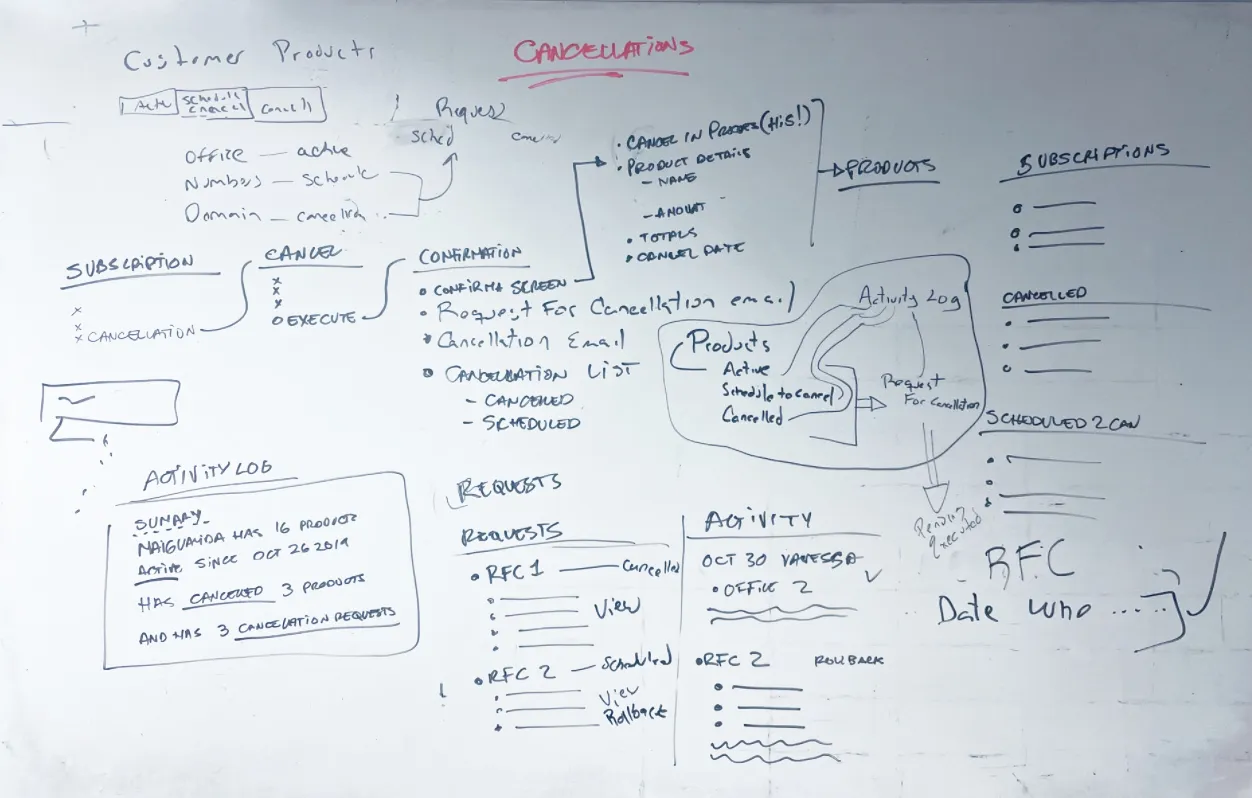 CANCELLATIONS
Customer Products
Schedule
cancel
Office — active
Numbers — schedule
Domain —
Request
Sched
• CANCEL IN PROCESS (this!)
• PRODUCT DETAILS
– NAME
– AMOUNT
• TOTALS
• CANCEL DATE
PRODUCTS
SUBSCRIPTIONS
CANCELLED
SCHEDULED 2 CAN
SUBSCRIPTION
x
x
x CANCELLATION
CANCEL
x
x
x
o EXECUTE
CONFIRMATION
• CONFIRMA SCREEN
• Request For Cancellation email
• Cancellation Email
• CANCELLATION LIST
– CANCELLED
– SCHEDULED
Activity Log
Products
Active
Schedule to cancel
Cancelled
Request
For Cancellation
Pending
Executed
ACTIVITY LOG
SUMARY
NAIGUANDA HAS 16 PRODUCTS
ACTIVE SINCE OCT 26 2019
HAS CANCELLED 3 PRODUCTS
AND HAS 3 CANCELATION REQUESTS
REQUESTS
REQUESTS
• RFC 1 — Cancelled
View
• RFC 2 — Scheduled
View
Rollback
ACTIVITY
OCT 30 VANESSA
• OFFICE 2
• RFC 2 ROLLBACK
RFC
Date Who .....